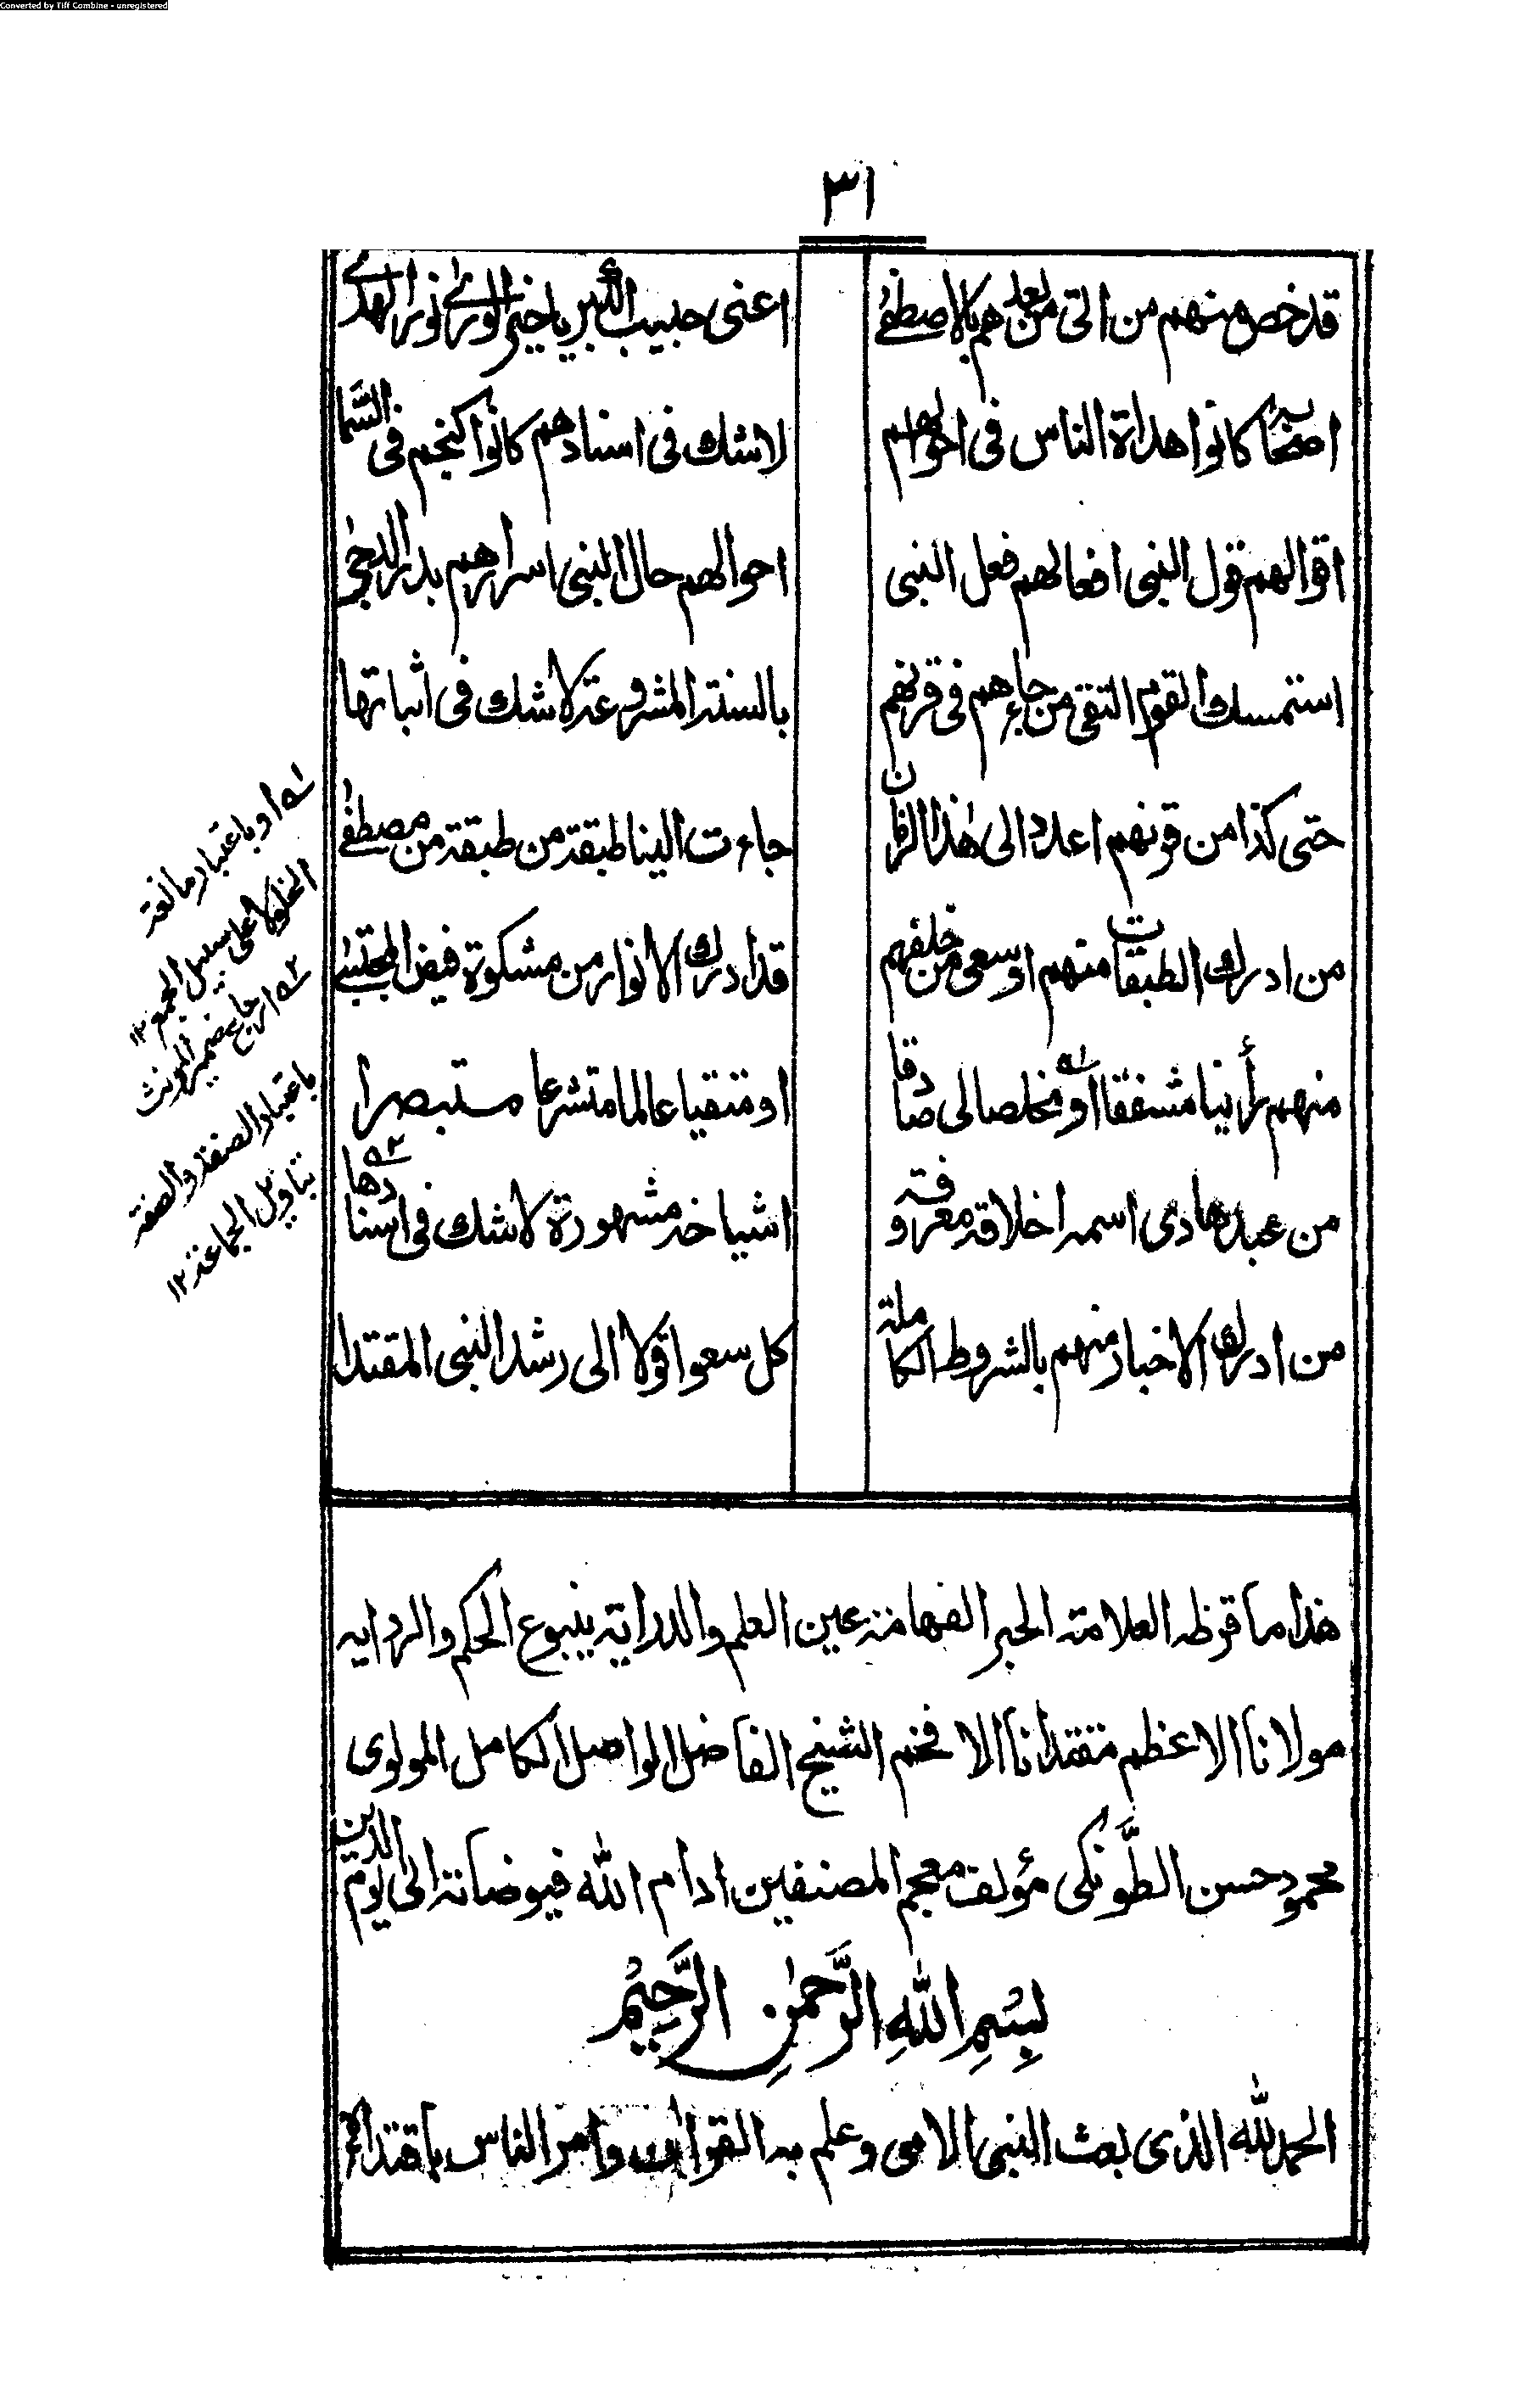 Converted by Tiff Combine - unregistered
٣١
قد خص منهم من اتى من بعدهم بالاصطفٰے
اعنى حبيب الكبريا خير الورٰے نور الهدٰے
اصحابه كانوا هداة الناس فى احوالهم
لا شك فى اسنادهم كانوا كنجم فى السَّما
اقوالهم قول النبى افعالهم فعل النبى
احوالهم حال النبى اسرارهم بدر الدجىٰ
استمسك القوم التقى من جاءهم فى قرنهم
بالسنة المشروعة لا شك فى اثباتها
حتى كذا من قرنهم اعدد الى هٰذا الزمان
جاءت الينا طبقة من طبقة من مصطفٰے
من ادرك الطبقات منهم او سعى من خلفهم
قد ادرك الانوار من مشكوة فيض المجتبٰے
منهم رأينا مشفقا او۱ه مخلصا لى صادقا
او متقيا عالما متشرعا مستبصرا
من عبد هادى اسمه اخلاقه معروفة
اشياخه مشهورة لا شك فى اسنادها۲ه
من ادرك الاخيار منهم بالشروط الكاملة
كل سعوا قولا الى رشد النبى المقتدا
۱ه او باعتبار مانعة
الخلو لا على سبيل الجمع ۱۲
۲ه ارجاع ضمير المونث
باعتبار الصفة والصفة
بتاويل الجماعة ۱۲
هٰذا ما قرظه العلامة الحبر الفهامة عين العلم والدراية ينبوع الحكم والرداية
مولانا الاعظم مقتدانا الافخم الشيخ الفاضل الواصل الكامل المولوى
محمود حسن الطَّونكى مؤلف معجم المصنفين ادام الله فيوضاته الى يوم الدين
بِسْمِ اللهِ الرَّحمٰنِ الرَّحِيْم
الحمد لله الذى بعث النبى الامى وعلم به القران وامر الناس باقتداء